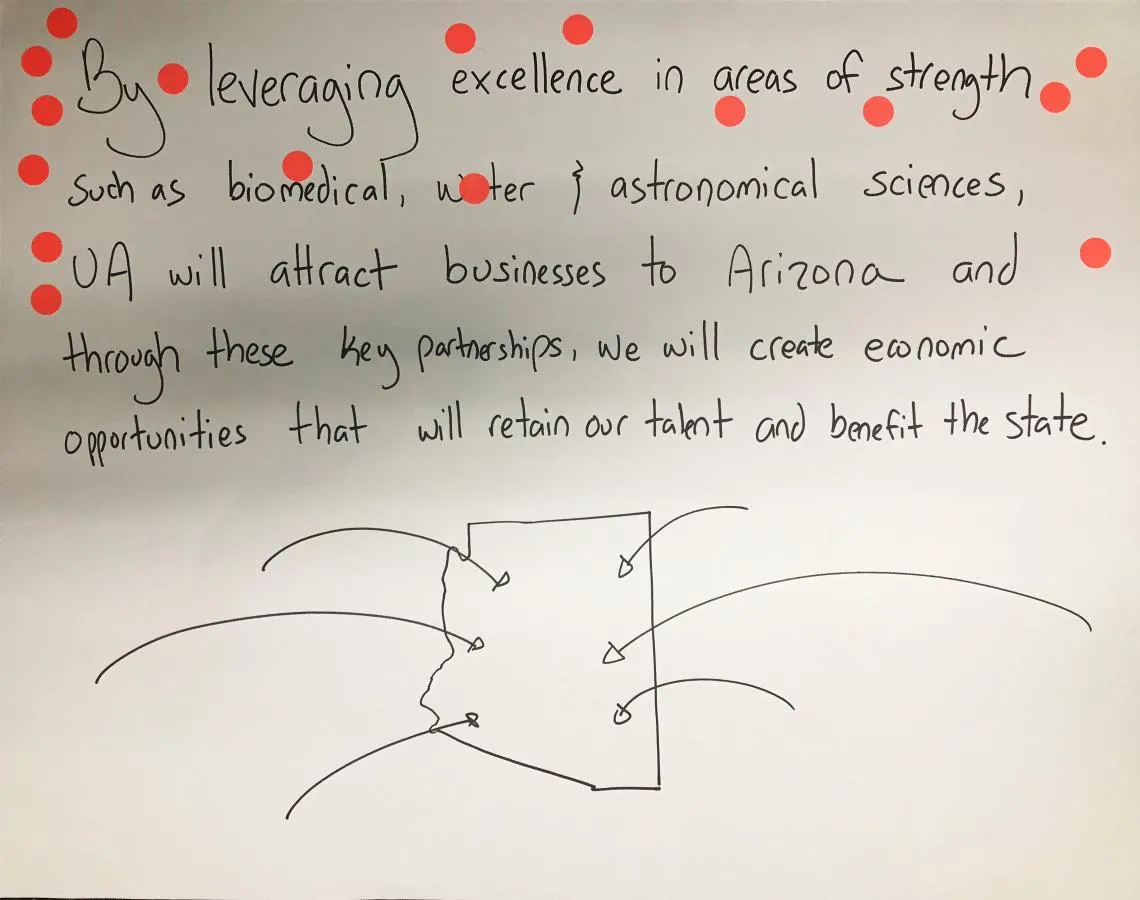 By leveraging excellence in areas of strength
such as biomedical, water & astronomical sciences,
UA will attract businesses to Arizona and
through these key partnerships, we will create economic
opportunities that will retain our talent and benefit the state.